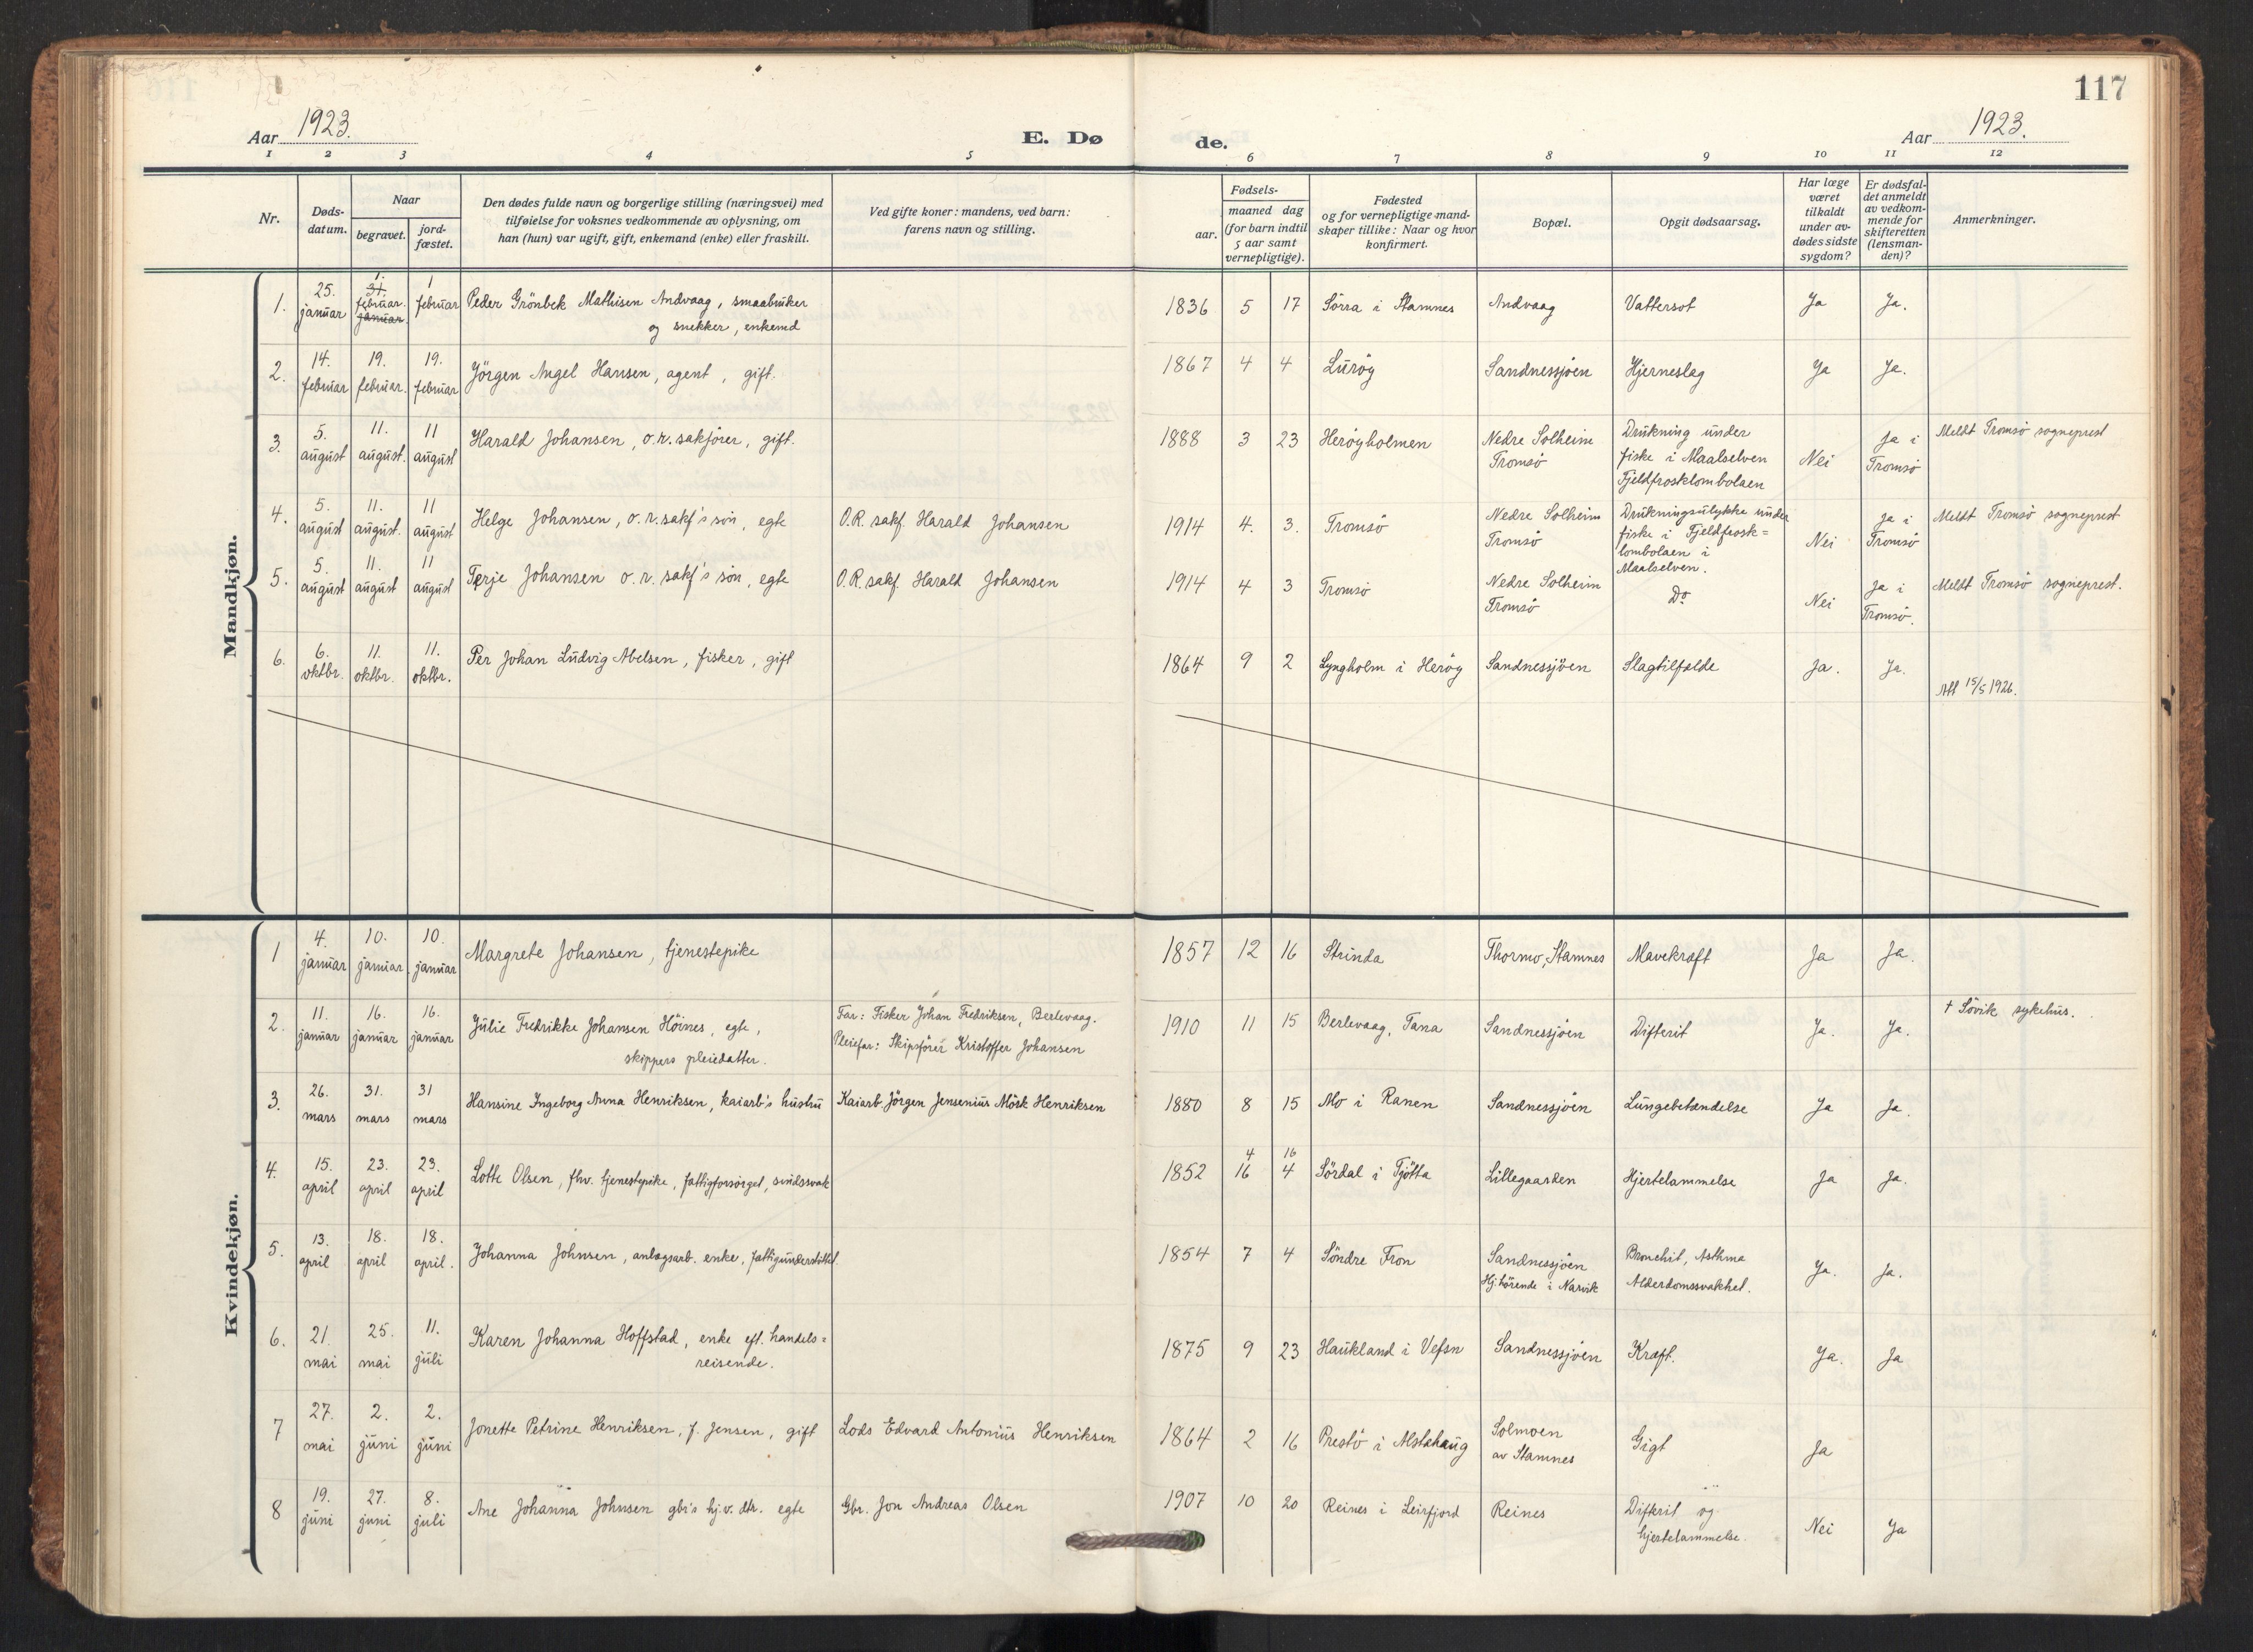 117
Aar 1923.
E. Dø
de.
Aar 1923.
1 2 3 4 5 6 7 8 9 10 11 12
Nr.
Døds-
datum.
Naar
begravet.
jord-
fæstet.
Den dødes fulde navn og borgerlige stilling (næringsvei) med
tilføielse for voksnes vedkommende av oplysning, om
han (hun) var ugift, gift, enkemand (enke) eller fraskilt.
Ved gifte koner: mandens, ved barn:
farens navn og stilling.
Fødsels-
aar.
maaned dag
(for barn indtil
5 aar samt
vernepligtige).
Fødested
og for vernepligtige mand-
skaper tillike: Naar og hvor
konfirmert.
Bopæl.
Opgit dødsaarsag.
Har læge
været
tilkaldt
under av-
dødes sidste
sygdom?
Er dødsfal-
det anmeldt
av vedkom-
mende for
skifteretten
(lensman-
den)?
Anmerkninger.
Mandkjøn.
1. 25. januar 31. januar 1. februar 1 februar Peder Grönbek Mathisen Andvaag, smaabruker
og snekker, enkemd
1836 5 17 Sörra i Stamnes Andvaag Vattersot Ja Ja.
2. 14. februar 19. februar. 19. februar Jörgen Angel Hansen, agent, gift.
1867 4 4 Luröy Sandnessjöen Hjerneslag Ja Ja.
3. 5. august 11. august. 11 august Harald Johansen, o.r.sakförer, gift.
1888 3 23 Heröyholmen Nedre Solheim
Tromsö
Drukning under
fiske i Maalselven
Fjeldfrosklombolaen
Nei Ja i
Tromsö
Meldt Tromsö sogneprest
4. 5. august 11. august. 11 august Helge Johansen, o.r.sakf's sön, egte O.R. sakf. Harald Johansen
1914 4. 3. Tromsö Nedre Solheim
Tromsö
Drukningsulykke under
fiske i Fjeldfrosk=
lombolaen i
Maalselven.
Nei Ja i
Tromsö
Meldt Tromsö sogneprest
5. 5. august 11. august 11 august Terje Johansen o.r.sakf's sön, egte O.R.sakf. Harald Johansen
1914 4 3 Tromsö Nedre Solheim
Tromsö
Do
Nei Ja i
Tromsö.
Meldt Tromsö sogneprest.
6. 6. oktbr. 11. oktbr. 11. oktbr. Per Johan Ludvig Abelsen, fisker, gift
1864 9 2 Lyngholm i Heröy Sandnessjöen Slagtilfælde Ja. Ja.
15/5 1926.
Kvindekjøn.
1 4. januar 10. januar. 10. januar Margrete Johansen, tjenestepike
1857 12 16 Strinda Thormo, Stamnes Mavekræft Ja Ja.
2. 11. januar 16. januar 16. januar Julie Fredrikke Johansen Höines, egte,
skippers pleiedatter.
Far: Fisker Johan Fredriksen, Berlevaag.
Pleiefar: Skipsförer Kristoffer Johansen
1910 11 15 Berlevaag, Tana Sandnessjöen Difterit Ja. Ja.
† Sövik sykehus.
3. 26. mars 31. mars 31 mars Hansine Ingeborg Anna Henriksen, kaiarb's hustru Kaiarb. Jörgen Jensenius Mörk Henriksen
1880 8 15 Mo i Ranen Sandnessjöen Lungebetændelse Ja Ja.
4. 15. april 23. april 23. april Lotte Olsen, fhv. tjenestepike, fattigforsörget, sindssvak
1852 4 16 16 4 Sördal i Tjötta Lillegaarden Hjertelammelse Ja Ja.
5. 13. april 18. april 18. april. Johanna Johnsen, anlægsarb. enke, fattigunderstöttet.
1854 7 4 Söndre Fron Sandnessjöen
Hj.hörende i Narvik
Bronchit, Asthma
Alderdomssvakhet.
Ja. Ja.
6. 21. mai 25. mai 11. juli Karen Johanna Hoffstad, enke eft. handels=
reisende.
1875 9 23 Haukland i Vefsn Sandnessjöen Kræft. Ja. Ja
7 27. mai 2. juni 2. juni Jonette Petrine Henriksen, f. Jensen, gift Lods Edvard Antonius Henriksen
1864 2 16 Prestö i Alstahaug Solmoen
av Stamnes
Gigt Ja
8 19. juni 27. juni 8. juli Ane Johanna Johnsen gbr's hj.v. dtr. egte Gbr. Jon Andreas Olsen
1907 10 20 Reines i Leirfjord Reines Difterit og
hjertelammelse.
Nei Ja